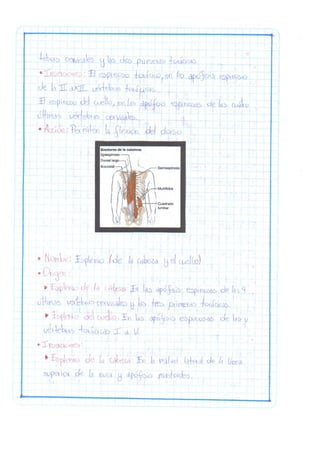 últimas cervicales y las dos primeras torácicas.
• Inserciones: El espinoso torácico, en las apófisis espinosas
de la II a XII vértebras torácicas.
El espinoso del cuello, en las apófisis espinosas de las cuatro
últimas vértebras cervicales.
• Acción: Permiten la flexión del dorso.
Erectores de la columna
Epiespinoso
Dorsal largo
Iliocostal
Semiespinoso
Multífidos
Cuadrado
lumbar
• Nombre: Esplenio (de la cabeza y el cuello)
• Origen:
Esplenio de la cabeza: En las apófisis espinosas de las 4
últimas vértebras cervicales y las tres primeras torácicas.
Esplenio del cuello: En las apófisis espinosas de las
vértebras torácicas
• Inserciones:
Esplenio de la cabeza: En la mitad lateral de la línea
superior de la nuca y apófisis mastoides.